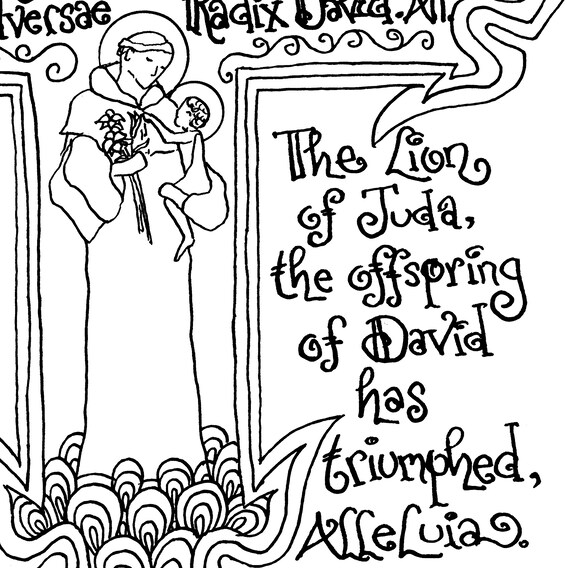 versae Radix David. All.
The Lion
of Juda,
the offspring
of David
has
triumphed,
Alleluia.